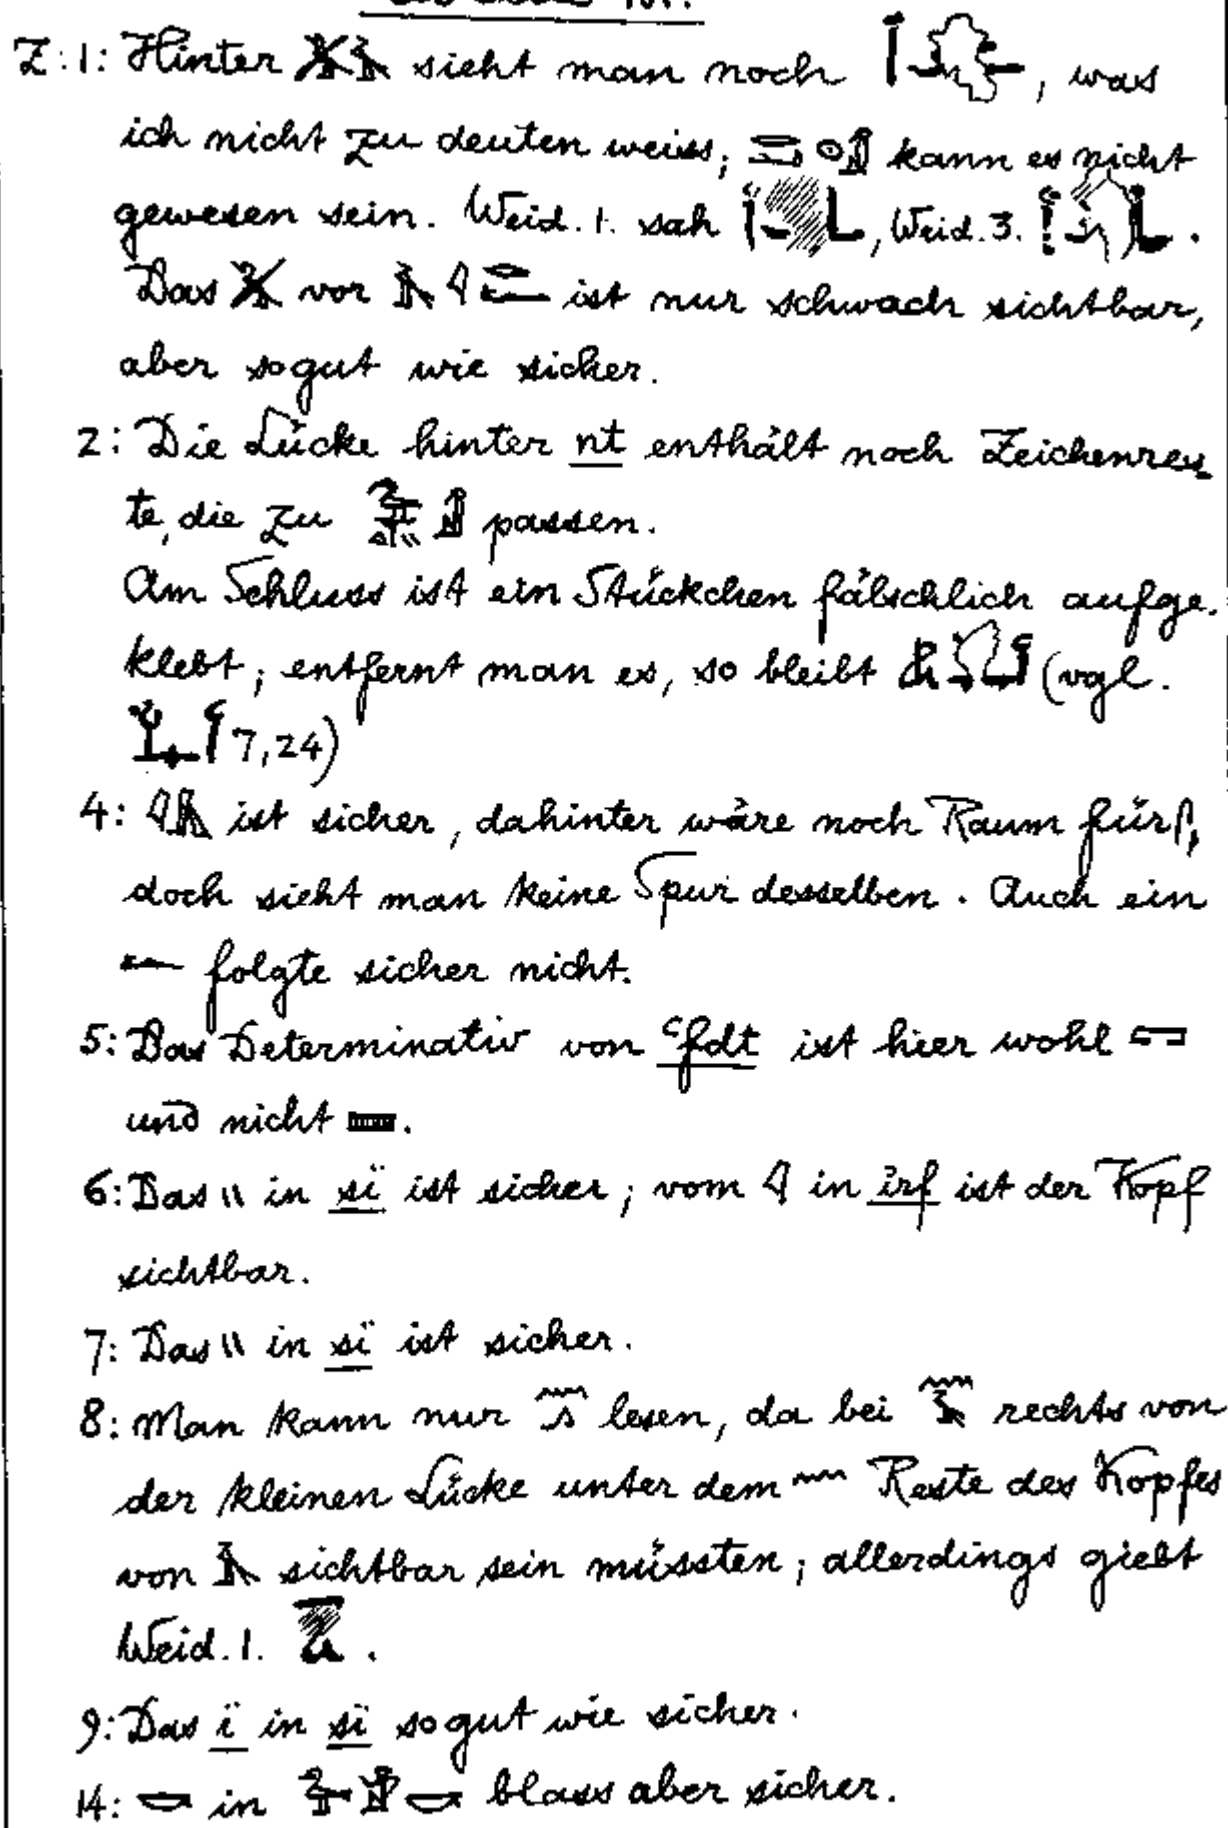 Z:1: Hinter sieht man noch , was
ich nicht zu deuten weiss; kann es nicht
gewesen sein. Weid. 1. sah , Weid. 3. .
Das vor ist nur schwach sichtbar,
aber sogut wie sicher.
2: Die Lücke hinter nt enthält noch Zeichenres-
te, die zu passen.
Am Schluss ist ein Stückchen fälschlich aufge-
klebt; entfernt man es, so bleibt (vgl.
7,24)
4: ist sicher, dahinter wäre noch Raum für ,
doch sieht man keine Spur desselben. Auch ein
folgte sicher nicht.
5: Das Determinativ von ꜥfdt ist hier wohl
und nicht .
6: Das \\ in sï ist sicher; vom in irf ist der Kopf
sichtbar.
7: Das \\ in sï ist sicher.
8: Man kann nur lesen, da bei rechts von
der kleinen Lücke unter dem Reste des Kopfes
von sichtbar sein müssten; allerdings giebt
Weid. 1. .
9: Das ï in sï sogut wie sicher.
14: in blass aber sicher.